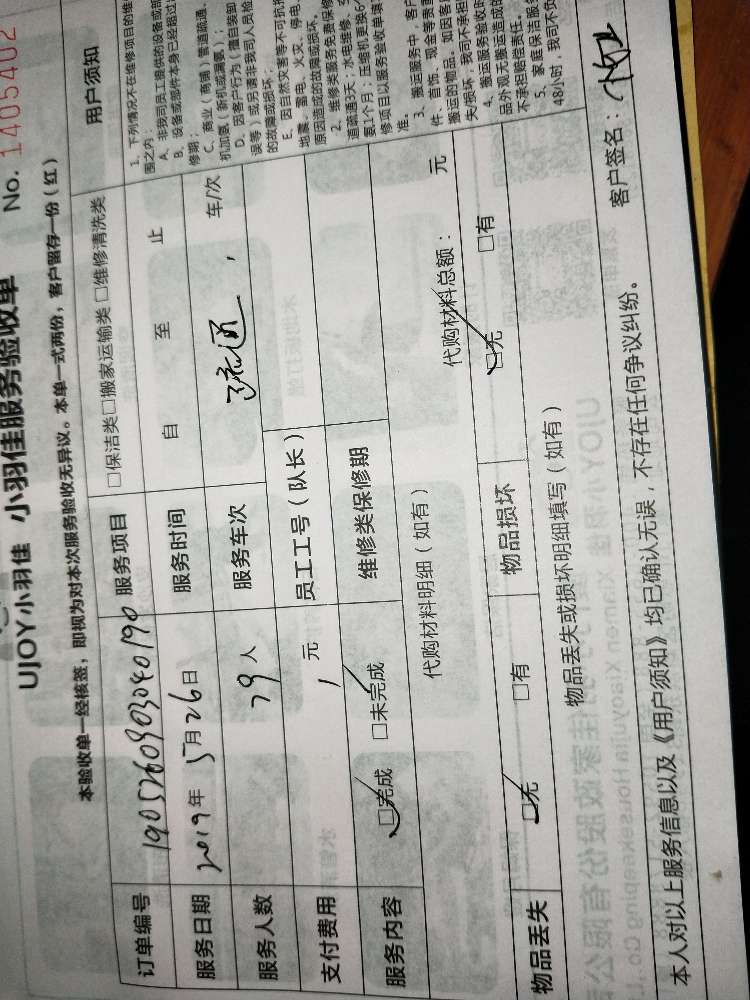 UJOY小羽佳 小羽佳服务验收单 No. 1405402
本验收单一经核签，即视为对本次服务验收无异议。本单一式两份，客户留存一份（红）
订单编号 1905260903040190 服务项目 □保洁类□搬家运输类□维修清洗类
服务日期 2019年5月26日 服务时间 自 至 止
服务人数 人 服务车次 疏通， 车/次
支付费用 元 员工工号（队长）
服务内容 □完成 □未完成 维修类保修期
代购材料明细（如有） 代购材料总额： 元
物品丢失 □无 □有 物品损坏 □无 □有
物品丢失或损坏明细填写（如有）
本人对以上服务信息以及《用户须知》均已确认无误，不存在任何争议纠纷。 客户签名：
用户须知
1、下列情况不在维修项目的维
围之内：
A、非我司员工提供的设备或部
B、设备或部件本身已经超过
修期；
C、商业（商铺）管道疏通、
机加氨（新机或漏氨）；
D、因客户行为（擅自装卸
误等）或另请非我司人员检
的故障或损坏；
E、因自然灾害等不可抗拒
地震、雷电、火灾、停电
原因造成的故障或损坏。
2、维修类服务免费保修
道疏通3天；水电维修、空
氨1个月；压缩机更换6个
修项目以服务验收单填
准。
3、搬运服务中，客户
件、首饰、现金等贵重
搬运的物品。如因客
失/损坏，我司不承担
4、搬运服务验收时
品外观无搬运造成的
不承担赔偿责任。
5、家庭保洁服务
48小时，我司不负